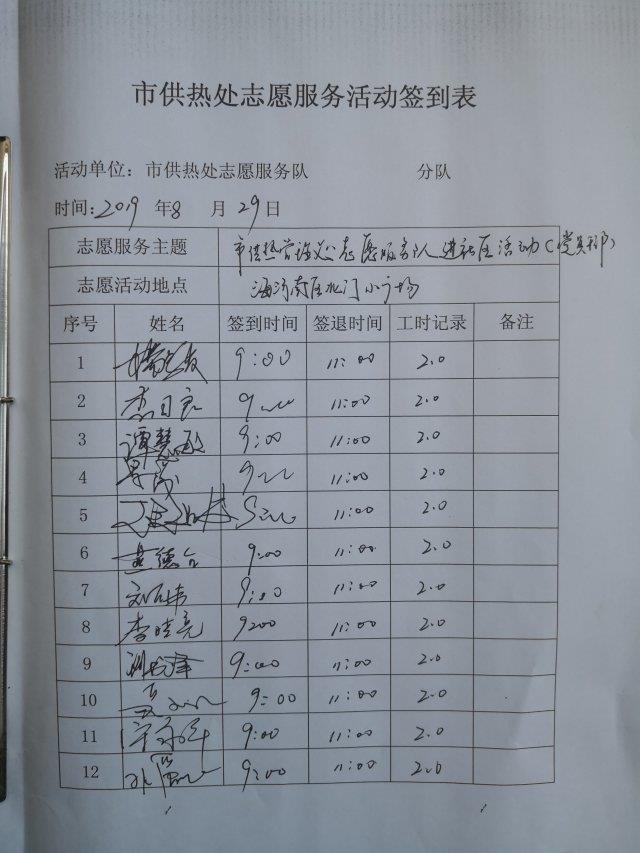 市供热处志愿服务活动签到表
活动单位：市供热处志愿服务队 分队
时间:2019 年8 月29日
志愿服务主题 市供热 志愿服务队进社区活动(党员
志愿活动地点 北门小广场
序号 姓名 签到时间 签退时间 工时记录 备注
1 9:00 11:00 2.0
2 李日良 11:00 2.0
3 谭慧 9:00 11:00 2.0
4 11:00 2.0
5 11:00 2.0
6 德 9:00 11:00 2.0
7 刘 9:00 11:00 2.0
8 李晓亮 9:00 11:00 2.0
9 9:00 11:00 2.0
10 9:00 11:00 2.0
11 9:00 11:00 2.0
12 9:00 11:00 2.0